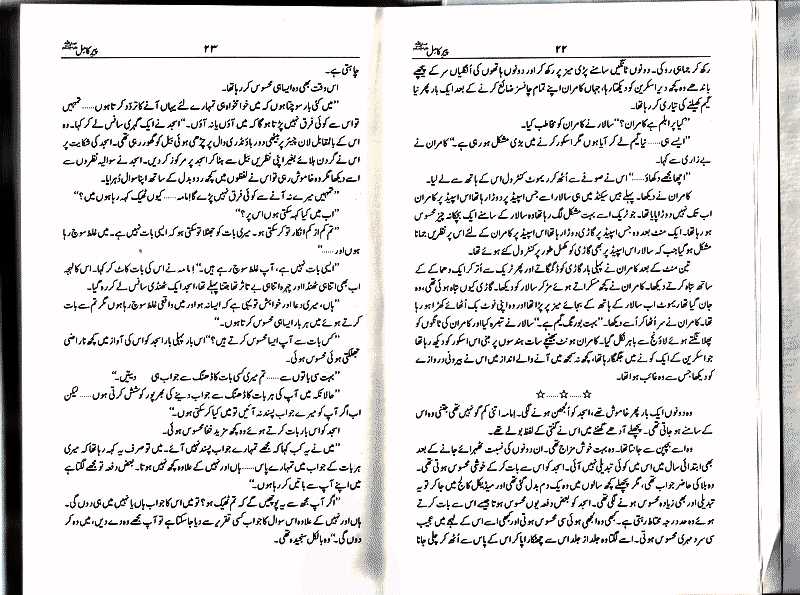 پیر کامل
۲۲
رکھ کر جماہی روکی۔ وہ دونوں ٹانگیں سامنے پڑی میز پر رکھ کر اور دونوں ہاتھوں کی اُنگلیاں سر کے پیچھے
باندھے وہ کچھ دیر اسکرین کو دیکھتا رہا، جہاں کامران اپنے تمام چانسز ضائع کرنے کے بعد ایک بار پھر نیا
گیم کھیلنے کی تیاری کر رہا تھا۔
"کیا پرابلم ہے کامران؟" سالار نے کامران کو مخاطب کیا۔
"ایسے ہی...... نیا گیم لے کر آیا ہوں مگر اسکور کرنے میں بڑی مشکل ہو رہی ہے۔" کامران نے
بے زاری سے کہا۔
"اچھا مجھے دکھاؤ......" اس نے صوفے سے اُٹھ کر ریموٹ کنٹرول اس کے ہاتھ سے لے لیا۔
کامران نے دیکھا۔ پہلے بیس سیکنڈ میں ہی سالار اسے جس اسپیڈ پر دوڑا رہا تھا اس اسپیڈ پر کامران
اب تک نہیں دوڑا پایا تھا۔ جو ٹریک اسے بہت مشکل لگ رہا تھا وہ سالار کے سامنے ایک بچکانہ چیز محسوس
ہو رہا تھا۔ ایک منٹ بعد وہ جس اسپیڈ پر گاڑی دوڑا رہا تھا اس اسپیڈ پر کامران کے لئے اس پر نظریں جمانا
مشکل ہو گیا جب کہ سالار اس اسپیڈ پر بھی گاڑی کو مکمل طور پر کنٹرول کئے ہوئے تھا۔
تین منٹ کے بعد کامران نے پہلی بار گاڑی کو ڈگمگاتے اور پھر ٹریک سے اُتر کر ایک دھماکے کے
ساتھ تباہ ہوتے دیکھا۔ کامران نے کچھ مسکراتے ہوئے مڑ کر سالار کو دیکھا۔ گاڑی کیوں تباہ ہوئی تھی، وہ
جان گیا تھا۔ ریموٹ اب سالار کے ہاتھ کے بجائے میز پر پڑا تھا اور وہ اپنی نوٹ بک اُٹھائے کھڑا ہو رہا
تھا۔ کامران نے سر اُٹھا کر اُسے دیکھا۔ "بہت بورنگ گیم ہے۔" سالار نے تبصرہ کیا اور کامران کی ٹانگوں کو
پھلانگتے ہوئے لاؤنج سے باہر نکل گیا۔ کامران ہونٹ بھینچے سات ہندسوں پر مبنی اس اسکور کو دیکھ رہا تھا
جو اسکرین کے ایک کونے میں جگمگا رہا تھا، کچھ نہ سمجھ میں آنے والے انداز میں اس نے بیرونی دروازے
کو دیکھا جس سے وہ غائب ہوا تھا۔
☆......☆......☆
وہ دونوں ایک بار پھر خاموش تھے، اسجد کو اُلجھن ہونے لگی۔ امامہ اتنی کم گو نہیں تھی جتنی وہ اس
کے سامنے ہو جاتی تھی۔ پچھلے آدھے گھنٹے میں اس نے گنتی کے لفظ بولے تھے۔
وہ اسے بچپن سے جانتا تھا۔ وہ بہت خوش مزاج تھی۔ ان دونوں کی نسبت ٹھہرائے جانے کے بعد
بھی ابتدائی سال میں اس میں کوئی تبدیلی نہیں آئی۔ اسجد کو اس سے بات کر کے خوشی محسوس ہوتی تھی۔
وہ بلا کی حاضر جواب تھی، مگر پچھلے کچھ سالوں میں وہ یک دم بدل گئی تھی اور میڈیکل کالج میں جا کر تو یہ
تبدیلی اور بھی زیادہ محسوس ہونے لگی تھی۔ اسجد کو بعض دفعہ یوں محسوس ہوتا جیسے اس سے بات کرتے
ہوئے وہ حد درجہ محتاط رہتی ہے۔ کبھی وہ اُلجھی ہوئی سی محسوس ہوتی اور کبھی اسے اس کے لہجے میں عجیب
سی سرد مہری محسوس ہوتی۔ اسے لگتا وہ جلد از جلد اس سے چھٹکارا پا کر اس کے پاس سے اُٹھ کر چلی جانا
پیر کامل
۲۳
چاہتی ہے۔
اس وقت بھی وہ ایسا ہی محسوس کر رہا تھا۔
"میں کئی بار سوچتا ہوں کہ میں خواہ مخواہ ہی تمہارے لئے یہاں آنے کا تردّد کرتا ہوں...... تمہیں
تو اس سے کوئی فرق نہیں پڑتا ہو گا کہ میں آؤں یا نہ آؤں۔" اسجد نے ایک گہری سانس لے کر کہا۔ وہ
اس کے بالمقابل لان چیئر پر بیٹھی دور باؤنڈری وال پر چڑھی ہوئی بیل کو گھور رہی تھی۔ اسجد کی شکایت پر
اس نے گردن ہلائے بغیر اپنی نظریں بیل سے ہٹا کر اسجد پر مرکوز کر دیں۔ اسجد نے سوالیہ نظروں سے
اسے دیکھا مگر وہ خاموش رہی تو اس نے لفظوں میں کچھ ردوبدل کے ساتھ اپنا سوال دُہرایا۔
"تمہیں میرے نہ آنے سے کوئی فرق نہیں پڑے گا امامہ...... کیوں ٹھیک کہہ رہا ہوں میں؟"
"اب میں کیا کہہ سکتی ہوں اس پر؟"
"تم کم از کم انکار تو کر سکتی ہو۔ میری بات کو جھٹلا تو سکتی ہو کہ ایسی بات نہیں ہے۔ میں غلط سوچ رہا
ہوں اور......"
"ایسی بات نہیں ہے، آپ غلط سوچ رہے ہیں۔" امامہ نے اس کی بات کاٹ کر کہا۔ اس کا لہجہ
اب بھی اتنا ہی ٹھنڈا اور چہرہ اتنا ہی بے تاثر تھا جتنا پہلے تھا، اسجد ایک ٹھنڈی سانس لے کر رہ گیا۔
"ہاں، میری دعا اور خواہش تو یہی ہے کہ ایسا نہ ہو اور میں واقعی غلط سوچ رہا ہوں مگر تم سے بات
کرتے ہوئے میں ہر بار ایسا ہی محسوس کرتا ہوں۔"
"کس بات سے آپ ایسا محسوس کرتے ہیں؟" اس بار پہلی بار اسجد کو اس کی آواز میں کچھ ناراضی
جھلکتی ہوئی محسوس ہوئی۔
"بہت سی باتوں سے...... تم میری کسی بات کا ڈھنگ سے جواب ہی دیتیں۔"
"حالانکہ میں آپ کی ہر بات کا ڈھنگ سے جواب دینے کی بھرپور کوشش کرتی ہوں...... لیکن
اب اگر آپ کو میرے جواب پسند نہ آئیں تو میں کیا کر سکتی ہوں۔"
اسجد کو اس بار بات کرتے ہوئے وہ کچھ مزید خفا محسوس ہوئی۔
"میں نے یہ کب کہا کہ مجھے تمہارے جواب پسند نہیں آئے۔ میں تو صرف یہ کہہ رہا تھا کہ میری
ہر بات کے جواب میں تمہارے پاس...... ہاں اور نہیں کے علاوہ کچھ نہیں ہوتا۔ بعض دفعہ تو مجھے لگتا ہے
میں اپنے آپ سے باتیں کر رہا ہوں۔"
"اگر آپ مجھ سے یہ پوچھیں گے کہ تم ٹھیک ہو؟ تو میں اس کا جواب ہاں یا نہیں میں ہی دوں گی۔
ہاں اور نہیں کے علاوہ اس سوال کا جواب کسی تقریر سے دیا جا سکتا ہے تو آپ مجھے وہ دے دیں، میں وہ کر
دوں گی۔" وہ بالکل سنجیدہ تھی۔